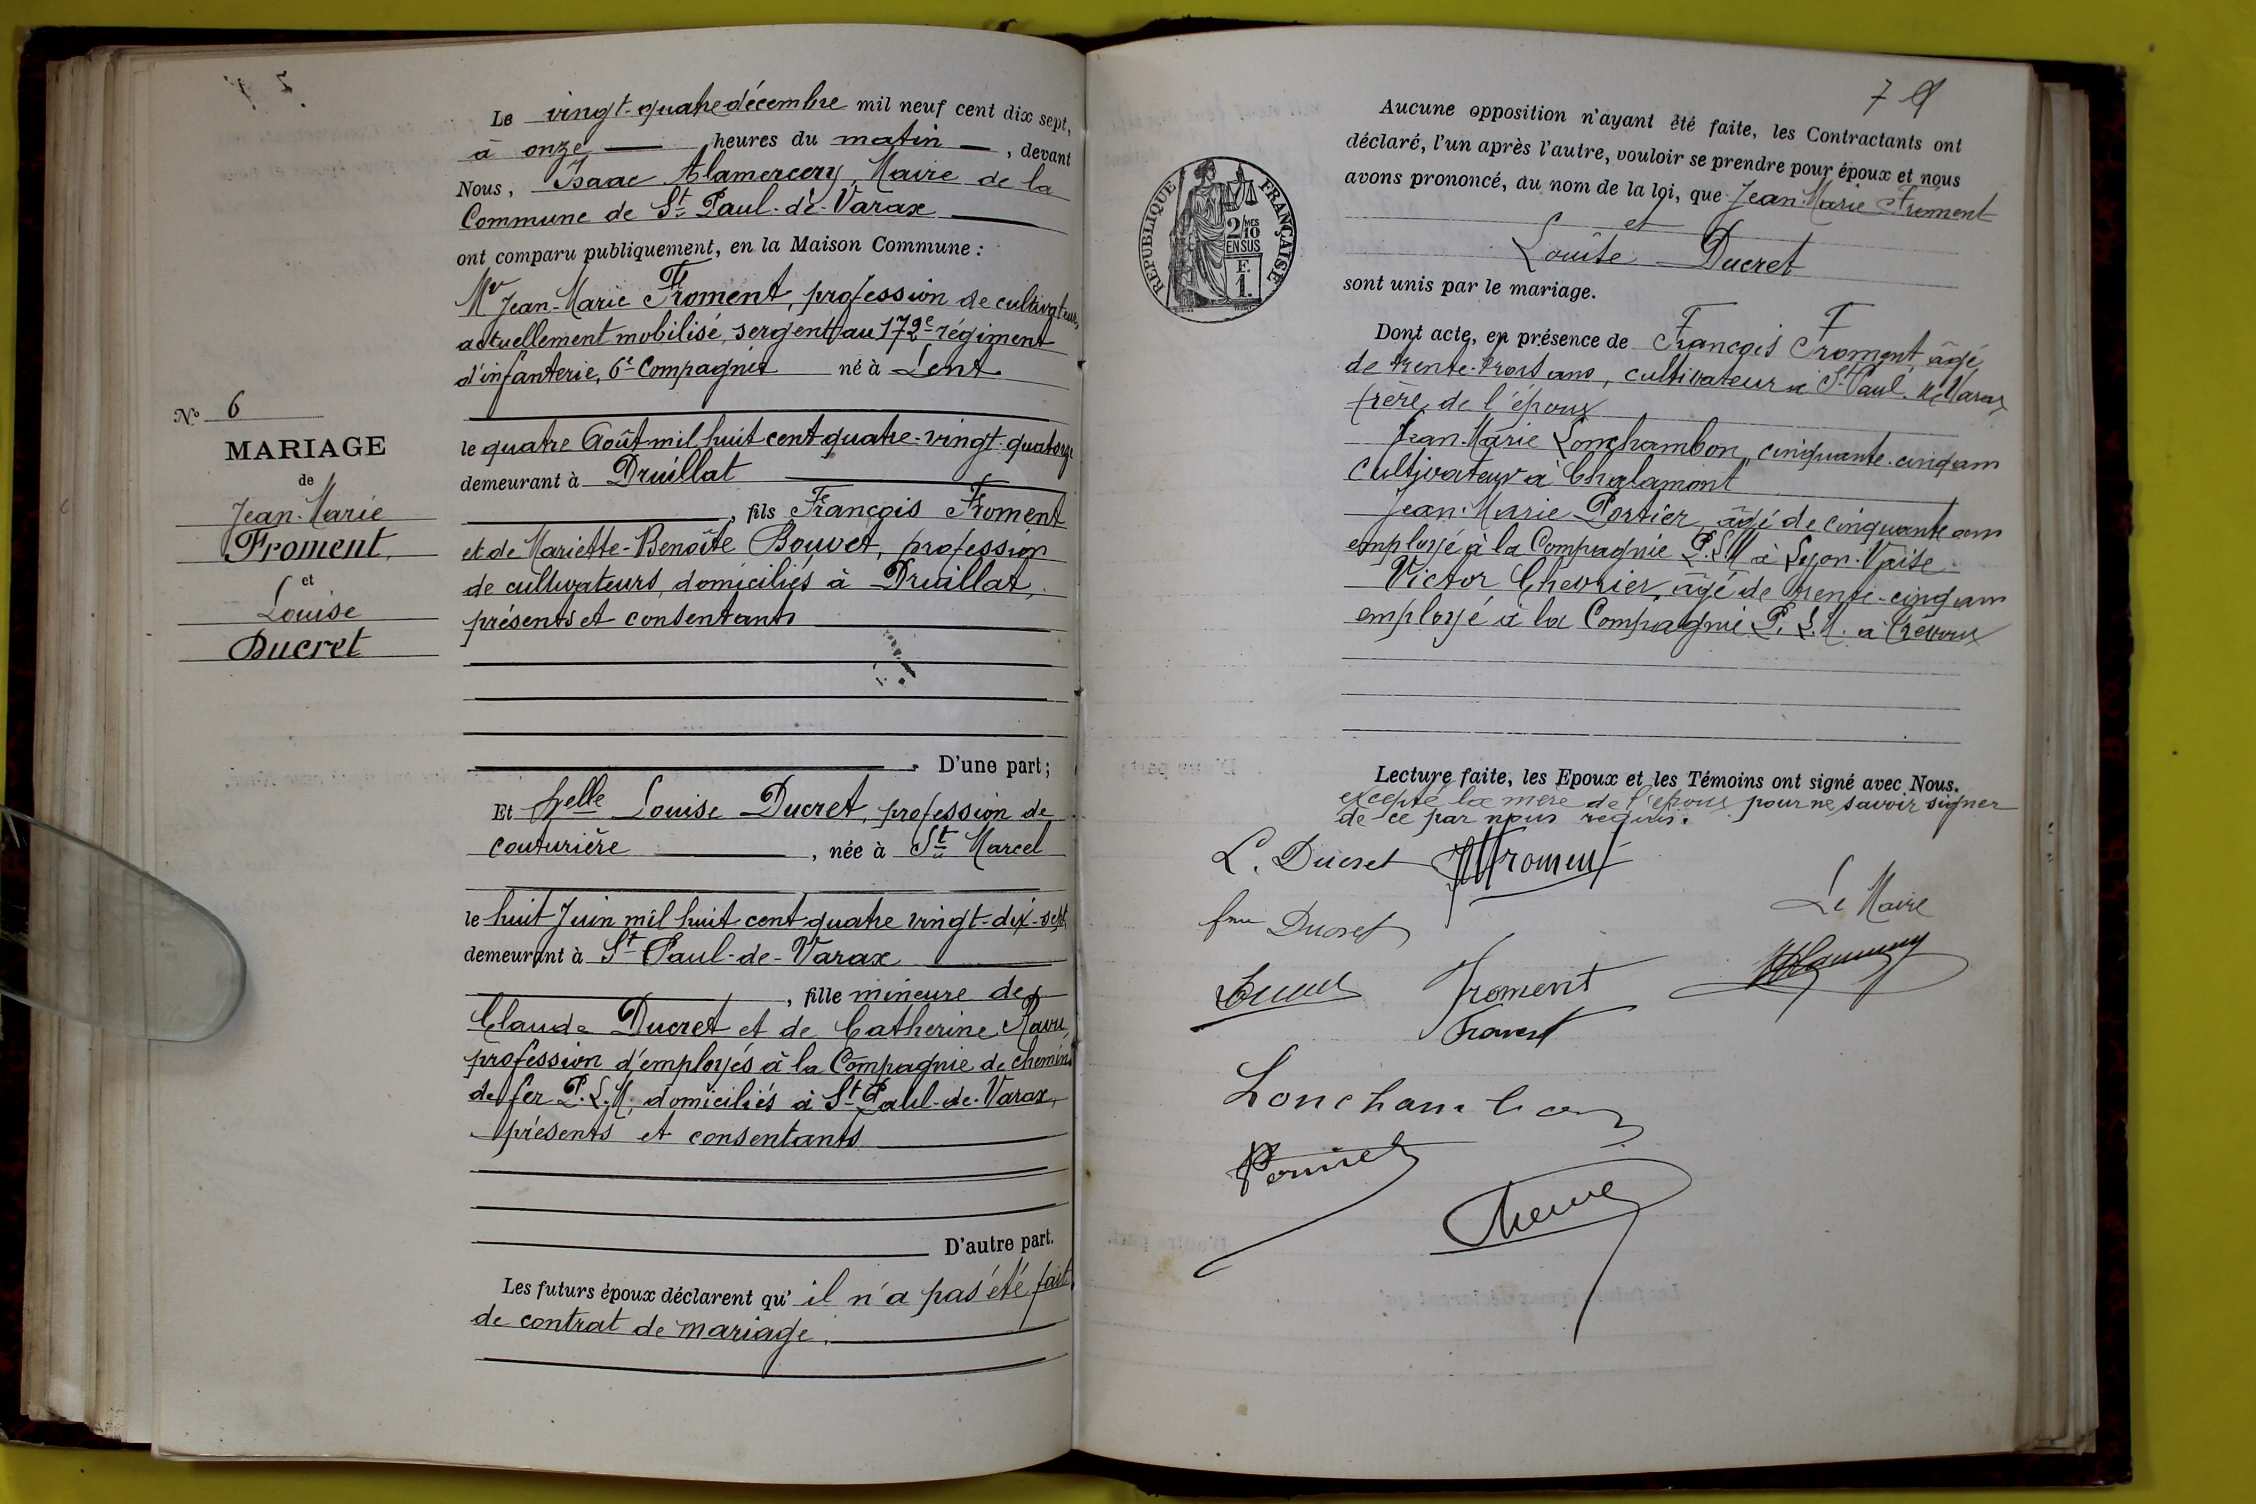 Le vingt-quatre décembre mil neuf cent dix sept,
à onze heures du matin, devant
Nous, Isaac Alamercery, Maire de la
Commune de St Paul-de-Varax
ont comparu publiquement, en la Maison Commune :
Mr Jean-Marie Froment, profession de cultivateur,
actuellement mobilisé, sergent au 172e régiment
d'infanterie, 6e Compagnie né à Lent
le quatre Août mil huit cent quatre-vingt-quatorze
demeurant à Druillat
, fils François Froment
et de Mariette-Benoîte Bouvet, profession
de cultivateurs, domiciliés à Druillat,
présents et consentants
D'une part;
Et Melle Louise Ducret, profession de
couturière, née à St Marcel
le huit Juin mil huit cent quatre vingt-dix-sept
demeurant à St Paul-de-Varax
, fille mineure de
Claude Ducret et de Catherine Ravu,
profession d'employés à la Compagnie de chemins
de fer P.L.M, domiciliés à St Paul-de-Varax,
présents et consentants
D'autre part.
Les futurs époux déclarent qu'il n'a pas été fait
de contrat de mariage.
No 6
MARIAGE
de
Jean-Marie
Froment,
et
Louise
Ducret
79
Aucune opposition n'ayant été faite, les Contractants ont
déclaré, l'un après l'autre, vouloir se prendre pour époux et nous
avons prononcé, au nom de la loi, que Jean-Marie Froment
et
Louise Ducret
sont unis par le mariage.
Dont acte, en présence de François Froment, âgé
de trente-trois ans, cultivateur à St Paul de Varax,
frère de l'époux
Jean-Marie Lonchambon, cinquante-cinq ans
cultivateur à Chalamont
Jean-Marie Perrier, âgé de cinquante ans
employé à la Compagnie P.L.M à Lyon-Vaise
Victor Chevrier, âgé de trente-cinq ans
employé à la Compagnie P.L.M. à Trévoux
Lecture faite, les Epoux et les Témoins ont signé avec Nous.
excepté la mère de l'époux pour ne savoir signer
de ce par nous requis.
L. Ducret JMFroment
fme Ducret
Le Maire
Ducret Froment
Froment
Lonchambon
RÉPUBLIQUE FRANÇAISE
2/10 MES
EN SUS
F.
1.